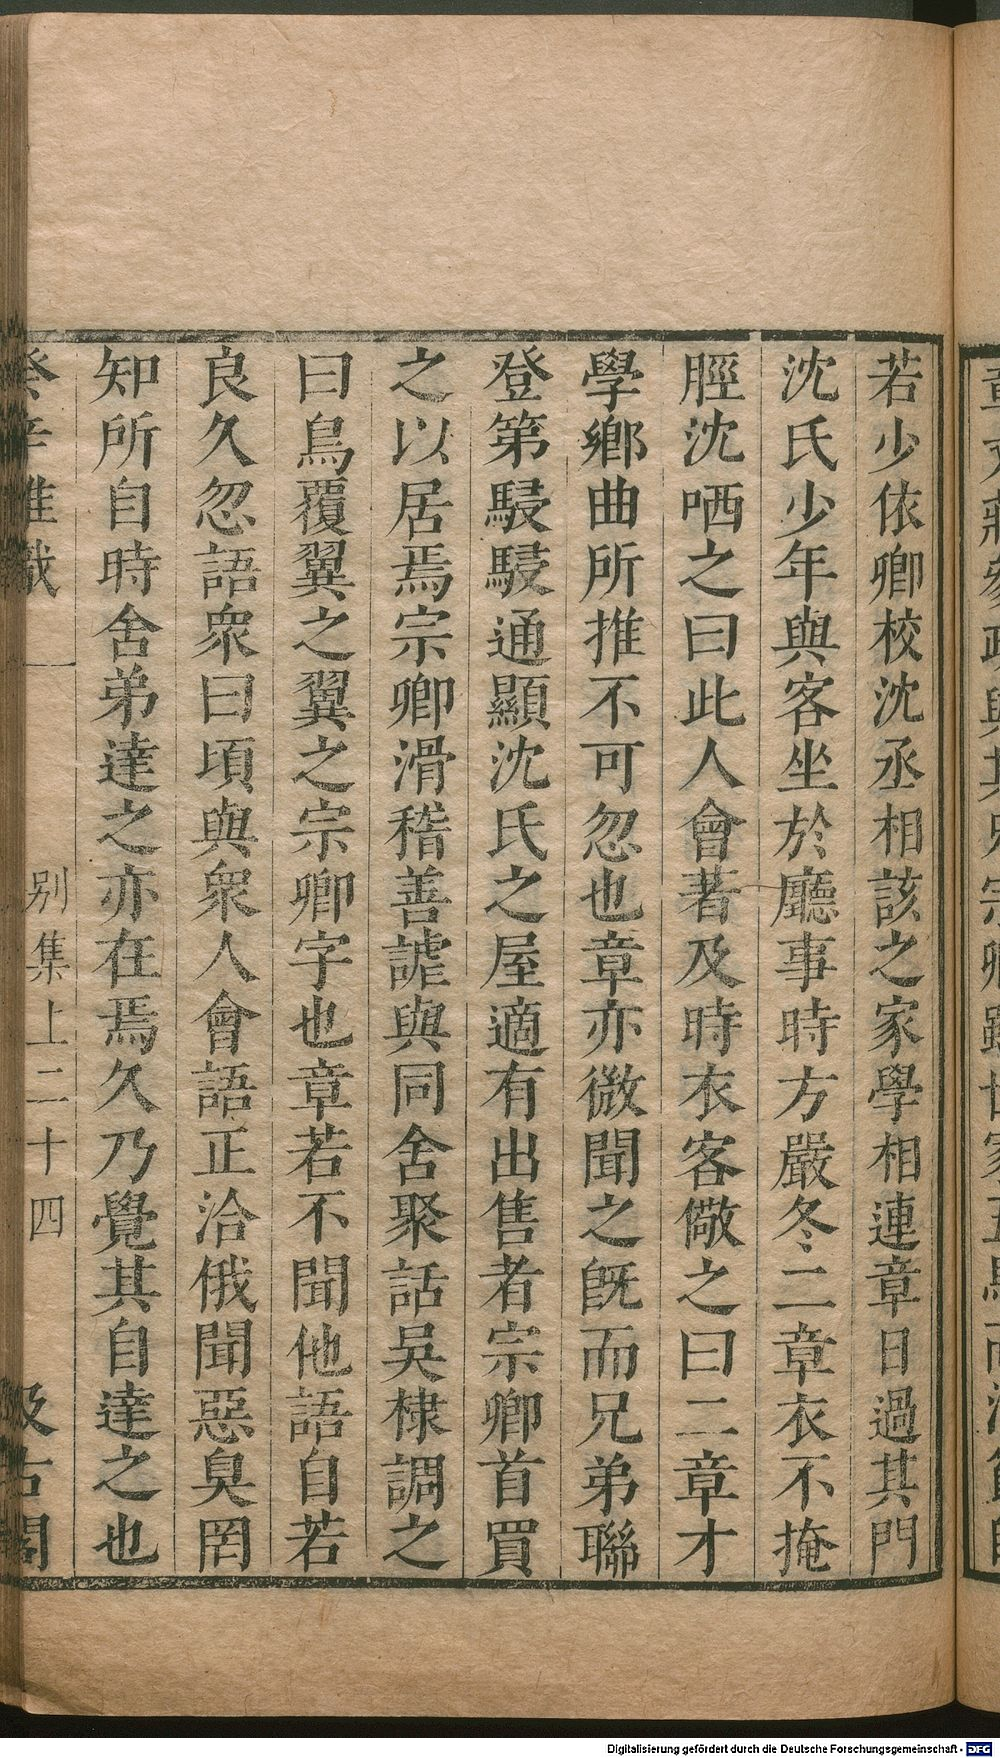 若少依卿校沈丞相該之家學相連章日過其門
沈氏少年與客坐於廳事時方嚴冬二章衣不掩
脛沈哂之曰此人會著及時衣客儆之曰二章才
學鄉曲所推不可忽也章亦微聞之旣而兄弟聯
登第駸駸通顯沈氏之屋適有出售者宗卿首買
之以居焉宗卿滑稽善謔與同舍聚話吳棣調之
曰鳥覆翼之翼之宗卿字也章若不聞他語自若
良久忽語衆曰頃與衆人會語正洽俄聞惡臭罔
知所自時舍弟達之亦在焉久乃覺其自達之也
癸辛雜識
别集上二十四
汲古閣
Digitalisierung gefördert durch die Deutsche Forschungsgemeinschaft - DFG